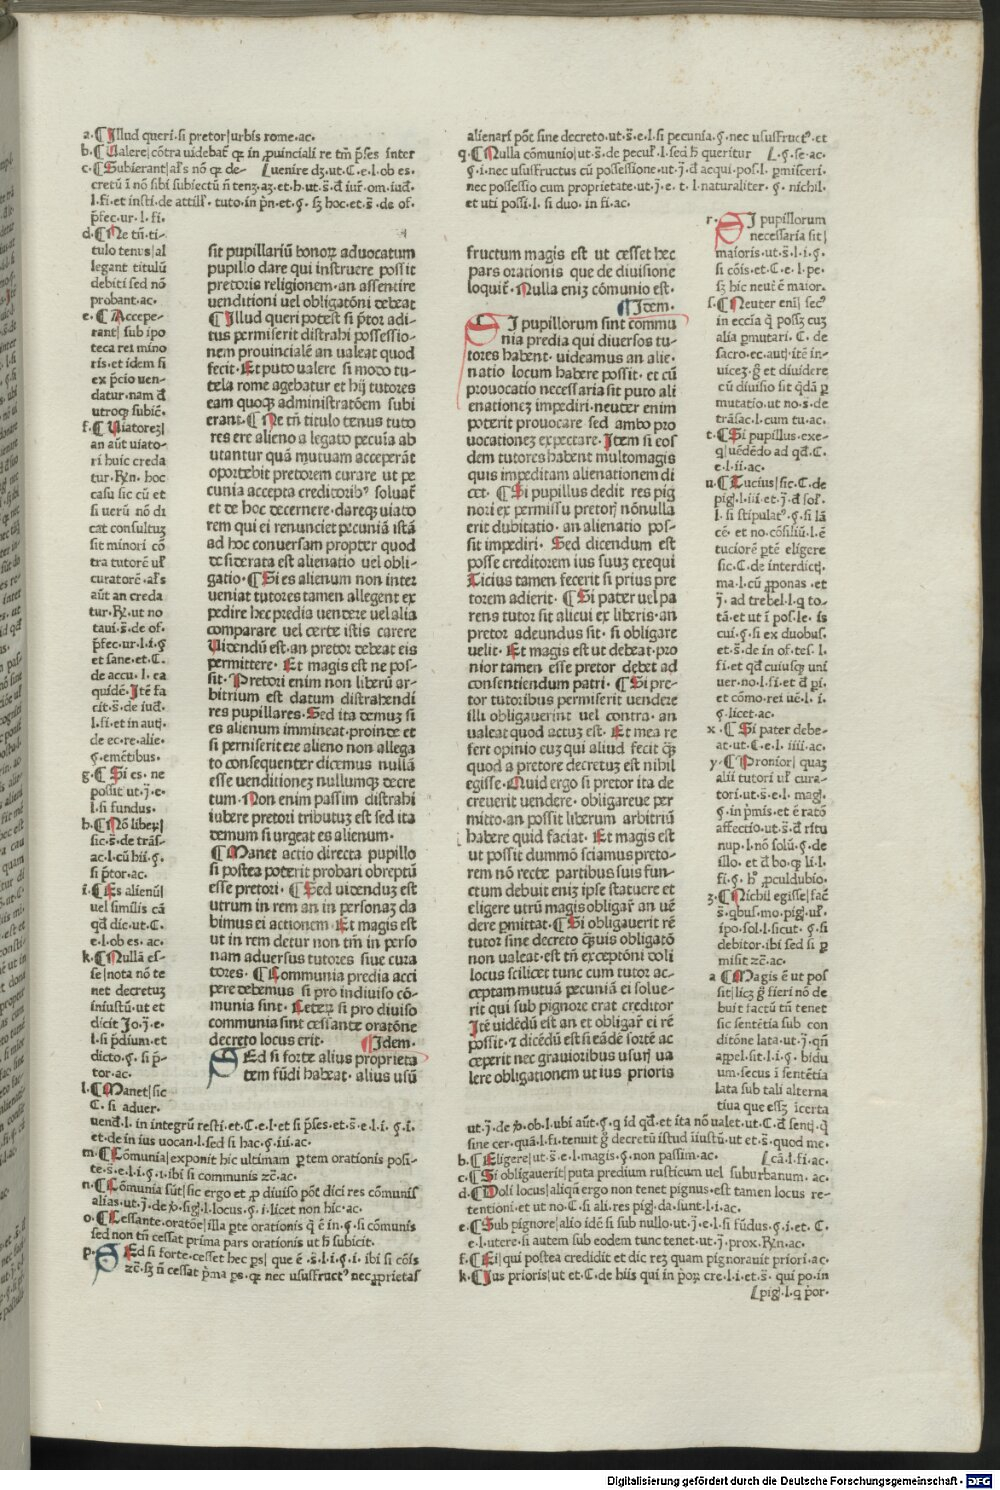 a·¶Illud queri·si pretor|urbis rome·ac·
b·¶Ualere|cōtra uidebat᷑ qꝛ in ꝓuinciali re tm̄ p̄ses inter
c·¶Subierant|al's nō qꝛ de- [uenire dꝫ·ut·C·e·l·ob es·
cretū ī nō sibi subiectū ñ tenꝫ·aꝫ·et·h·ut·s̄·d̄ iur̄·om·iud̄·
l·fi·et insti·de attill'·tuto·in p̄n·et·ꝯ·sꝫ hoc·et·s̄·de of·
p̄fec·ur·l·fi·
d·¶Ne tñ·ti-
tulo tenus|al
legant titulū
debiti sed nō
probant·ac·
e·¶Accepe-
rant| sub ipo
teca rei mino
ris·et idem si
ex p̄cio uen-
datur·nam d̄
utroqꝫ subic̄·
f·¶Uiatoreꝫ|
an aūt uiato-
ri huic creda
tur·R̄n·hoc
casu sic cū et
si uerū nō di
cat consultuꝫ
sit minori cō
tra tutorē ul'
curatorē·al's
aūt an creda
tur·R̄·ut no
taui·s̄·de of·
p̄fec·ur·l·i·ꝯ
et sane·et·C·
de accu·l·ea
quidē·Itē fa
cit·s̄·de iud̄·
l·fi·et in autj·
de ec·re·alie·
ꝯ·emētibus·
g·¶Si es·ne
possit·ut·j̄·e·
l·si fundus·
h·¶Nō liber|
sic·s̄·de trās-
ac·l·cū hii·ꝯ·
si p̄tor·ac·
i·¶Es alienū|
uel similis cā
qd̄ dic·ut·C·
e·l·ob es·ac·
k·¶Nullā es-
se|nota nō te
net decretuꝫ
iniustū·ut et
dicit Jo·j̄·e·
l·si p̄dium·et
dicto·ꝯ·si p̄-
tor·ac·
l·¶Manet|sic
C·si aduer·
uend̄·l·in integrū resti·et·C·e·l·et si p̄ses·et·s̄·e·l·i·ꝯ·i·
et·de in ius uocan·l·sed si hac·ꝯ·iii·ac·
m·¶Cōmunia|exponit hic ultimam ꝑtem orationis posi-
te·s̄·e·l·i·ꝯ·i·ibi si communis ⁊c̄·ac·
n·¶Cōmunia sūt|sic ergo et ꝓ diuiso pōt dici res cōmunis
alias·ut·j̄·de ꝟo·sig|·l·locus·ꝯ·i·licet non hic·ac·
o·¶Cessante·oratōe|illa ꝑte orationis q̄ ē in·ꝯ·si cōmunis
sed non tñ cessat prima pars orationis ut h̄ subicit·
p·Sed si forte·cesset hec ps| que ē·s̄·l·i·ꝯ·i·ibi si cōis
⁊c̄·sꝫ ñ cessat p̄ma ps·qꝛ nec ususfruct᷒ nec ꝓprietas
sit pupillariū bonoꝝ aduocatum
pupillo dare qui instruere possit
pretoris religionem·an assentire
venditioni uel obligatōni debeat
¶Illud queri potest si p̄tor adi-
tus permiserit distrahi possessio-
nem prouincialē an ualeat quod
fecit·Et puto ualere si modo tu-
tela rome agebatur et hij tutores
eam quoqꝫ administratōem subi
erant·¶Ne tñ titulo tenus tuto
res ere alieno a legato pecuīa ab
utantur quā mutuam acceperāt
oportebit pretorem curare ut pe
cunia accepta creditorib᷒ soluat᷑
et de hoc decernere·dareqꝫ uiato
rem qui ei renunciet pecuniā istā
ad hoc conuersam propter quod
desiderata est alienatio uel obli-
gatio·¶Si es alienum non inter
ueniat tutores tamen allegent ex
pedire hec predia uendere uel alia
comparare uel certe istis carere
Uidendū est·an pretor debeat eis
permittere·Et magis est ne pos-
sit·Pretori enim non liberū ar-
bitrium est datum distrahendi
res pupillares·Sed ita demuꝫ si
es alienum immineat·proinde et
si permiserit ere alieno non allega
to consequenter dicemus nullā
esse venditioneꝫ nullumqꝫ decre
tum·Non enim passim distrahi
iubere pretori tributuꝫ est sed ita
demum si urgeat es alienum·
¶Manet actio directa pupillo
si postea poterit probari obreptū
esse pretori·¶Sed uidenduꝫ est
utrum in rem an in personaꝫ da
bimus ei actionem·Et magis est
ut in rem detur non tm̄ in perso
nam aduersus tutores siue cura
tores·¶Communia predia acci
pere debemus si pro indiuiso cō-
munia sint·Ceteꝝ si pro diuiso
communia sint cessante oratōne
decreto locus erit· ¶Idem·
Sed si forte alius proprieta
tem fūdi habeat·alius usū
alienari pōt sine decreto·ut·s̄·e·l·si pecunia·ꝯ·nec ususfruct᷒·et
q·¶Nulla cōmunio|ut·s̄·de pecul'·l·sed h̄ queritur [·ꝯ·se·ac·
ꝯ·i·nec ususfructus cū possessione·ut·j̄·d̄ acqui·pos·l·ꝑmisceri·
nec possessio cum proprietate·ut·j̄·e·t·l·naturaliter·ꝯ·nichil·
et uti possi·l·si duo·in fi·ac·
fructum magis est ut cesset hec
pars orationis que de diuisione
loquit᷑·Nulla eniꝫ cōmunio est·
¶Idem·
Si pupillorum sint commu
nia predia qui diuersos tu-
tores habent·uideamus an alie-
natio locum habere possit·et cū
prouocatio necessaria sit puto ali
enationeꝫ impediri·neuter enim
poterit prouocare sed ambo pro
uocationeꝫ expectare·Item si eos
dem tutores habent multomagis
quis impeditam alienationem di
cet·¶Si pupillus dedit res pig
nori ex permissu pretorꝭ nōnulla
erit dubitatio·an alienatio pos-
sit impediri·Sed dicendum est
posse creditorem ius suuꝫ exequi
Ticius tamen fecerit si prius pre
torem adierit·¶Si pater uel pa
rens tutor sit alicui ex liberis·an
pretor adeundus sit·si obligare
uelit·Et magis est ut debeat·pro
nior tamen esse pretor debet ad
consentiendum patri·¶Si pre-
tor tutoribus permiserit vendere
illi obligauerint uel contra·an
ualeat quod actuꝫ est·Et mea re
fert opinio cuꝫ qui aliud fecit q̄ꝫ
quod a pretore decretuꝫ est nihil
egisse·Quid ergo si pretor ita de
creuerit uendere·obligareue per
mitto·an possit liberum arbitriū
habere quid faciat·Et magis est
ut possit dummō sciamus preto-
rem nō recte partibus suis fun-
ctum debuit eniꝫ ipse statuere et
eligere utrū magis obligar̄ an uē
dere ꝑmittat·¶Si obligauerit rē
tutor sine decreto q̄uis obligatō
non ualeat·est tñ exceptōni doli
locus scilicet tunc cum tutor ac-
ceptam mutuā pecuniā ei solue-
rit qui sub pignore erat creditor
Itē uidēdū est an et obligar̄ ei rē
possit·⁊ dicēdū est si eādē sortē ac
ceperit nec grauioribus usurꝭ ua
lere obligationem ut ius prioris
r·Si pupillorum
necessaria sit|
maioris·ut·s̄·l·i·ꝯ·
si cōis·et·C·e·l·pe·
sꝫ hic neut᷑ ē maior·
s·¶Neuter eni| sec᷒
in eccīa q̄ possꝫ cuꝫ
alia ꝑmutari·C·de
sacro·ec·autj·itē in-
uiceꝫ·g̊ et diuidere
cū diuisio sit q̄dā ꝑ
mutatio·ut no·s̄·de
trāsac·l·cum tu·ac·
t·¶Si pupillus·exe-
q|uēdēdo ad qd̄·C·
e·l·ii·ac·
u·¶Lucius|sic·C·de
pig|·l·iii·et·j̄·d̄ sol'·
l·si stipulat᷒·ꝯ·si lā
cē·et no·cōsiliū·l·ē
tuciorē ꝑtē eligere
sic·C·de interdictꝭ·
ma·l·cū ꝓponas·et
j̄·ad trebel·l·q to-
tā·et ut ī pos·le·is
cui·ꝯ·si ex duobus·
et·s̄·de in of·tes·l·
fi·et qd̄ cuiusqꝫ uni
uer·no·l·si·et d̄ p̄i·
et cōmo·rei uē·l·i·
ꝯ·licet·ac·
x·¶Si pater debe-
at·ut·C·e·l·iiii·ac·
y·¶Pronior| quaꝫ
alii tutori ul' cura-
tori·ut·s̄·e·l·mag|·
ꝯ·in p̄mis·et ē ratō
affectio·ut·s̄·d̄ ritu
nup·l·nō solū·ꝯ·de
illo·et d̄ bo·qꝫ li·l·
fi·ꝯ·h᷒ ꝓculdubio·
ꝫ·¶Nichil egisse|fac̄
s̄·qbus·mo·pig|·ul'·
ipo·sol·l·sicut·ꝯ·si
debitor·ibi sed si ꝑ
misit ⁊c̄·ac·
a·¶Magis ē ut pos
sit|licꝫ g̊ fieri nō de
buit factū tñ tenet
sic sentētia sub con
ditōne lata·ut·j̄·qn̄
appel·sit·l·i·ꝯ·bidu
um·secus ī sentētia
lata sub tali alterna
tiua que essꝫ īcerta
ut·j̄·de ꝟo·ob·l·ubi aūt·ꝯ·q id qd̄·et ita nō valet·ut·C·d̄ sentj·q̄
sine cer·quā·l·fi·tenuit g̊ decretū istud iiustū·ut et·s̄·quod me·
b·¶Eligere|ut·s̄·e·l·magis·ꝯ·non passim·ac· [cā·l·fi·ac·
c·¶Si obligauerit|puta predium rusticum uel suburbanum·ac·
d·¶Doli locus|aliqn̄ ergo non tenet pignus·est tamen locus re-
tentioni·et ut no·C·si ali·res pig|·da·sunt·l·i·ac·
e·¶Sub pignore|alio idē si sub nullo·ut·j̄·e·l·si fūdus·ꝯ·i·et·C·
e·l·utere·si autem sub eodem tunc tenet·ut·j̄·prox·R̄n·ac·
f·¶Ei|qui postea credidit et dic reꝫ quam pignorauit priori·ac·
k·¶Ius prioris|ut et·C·de hiis qui in p̄oꝝ cre·l·i·et·s̄·qui po·in
[pig|·l·q p̄or·
Digitalisierung gefördert durch die Deutsche Forschungsgemeinschaft - DFG